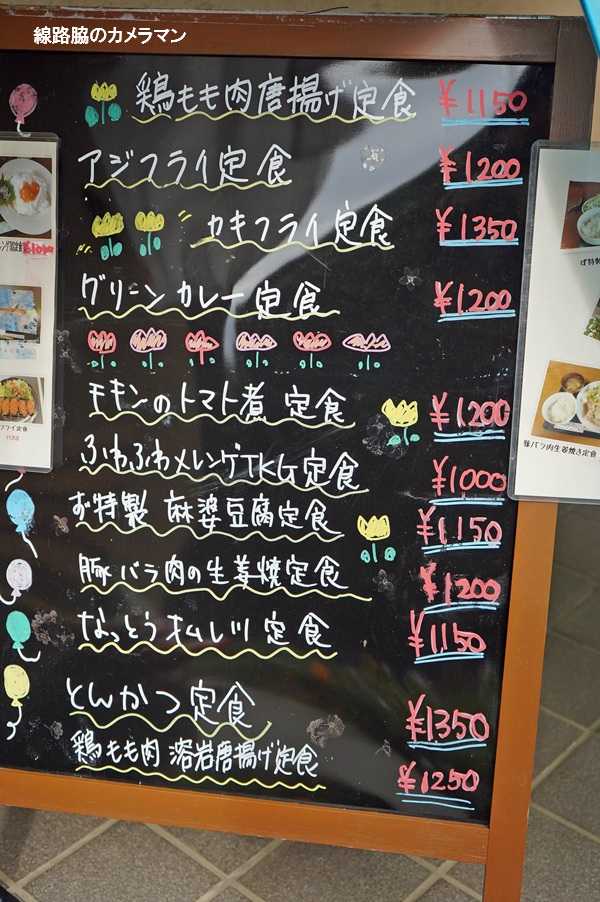 線路脇のカメラマン
鶏もも肉唐揚げ定食 ¥1150
アジフライ定食 ¥1200
カキフライ定食 ¥1350
グリーンカレー定食 ¥1200
チキンのトマト煮定食 ¥1200
ふわふわメレンゲTKG定食 ¥1000
お特製 麻婆豆腐定食 ¥1150
豚バラ肉の生姜焼定食 ¥1200
なっとうオムレツ定食 ¥1150
とんかつ定食 ¥1350
鶏もも肉 溶岩唐揚げ定食 ¥1250
豚バラ肉生姜焼き定食
フライ定食